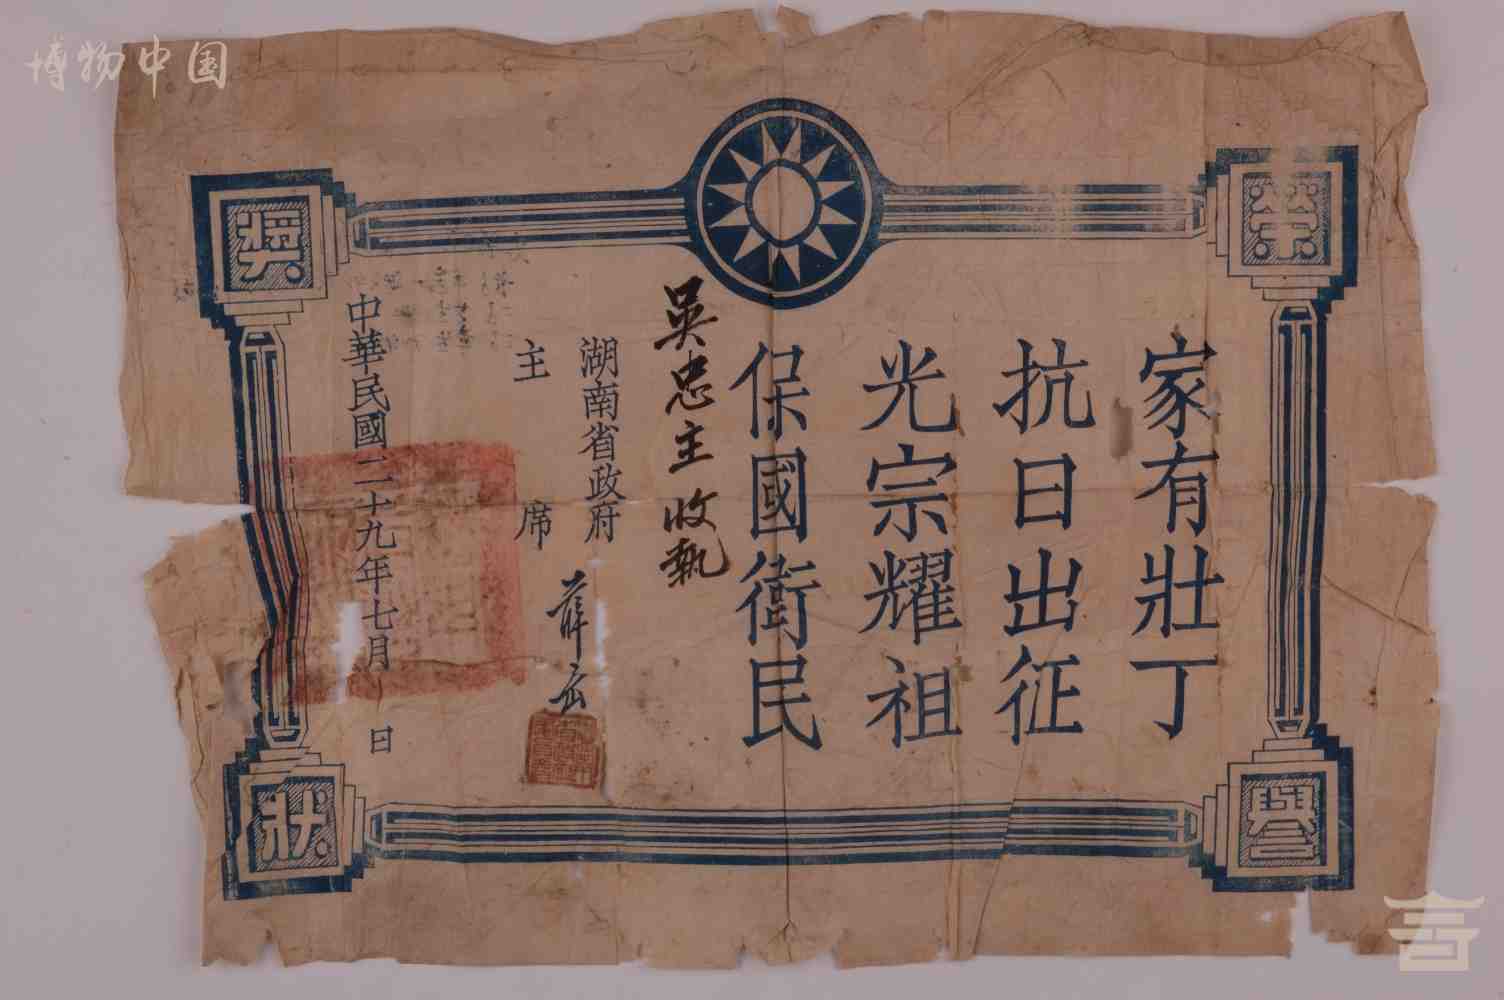 博物中国
榮譽獎狀
家有壯丁
抗日出征
光宗耀祖
保國衛民
吳忠主收執
湖南省政府
主席
薛岳
中華民國二十九年七月 日